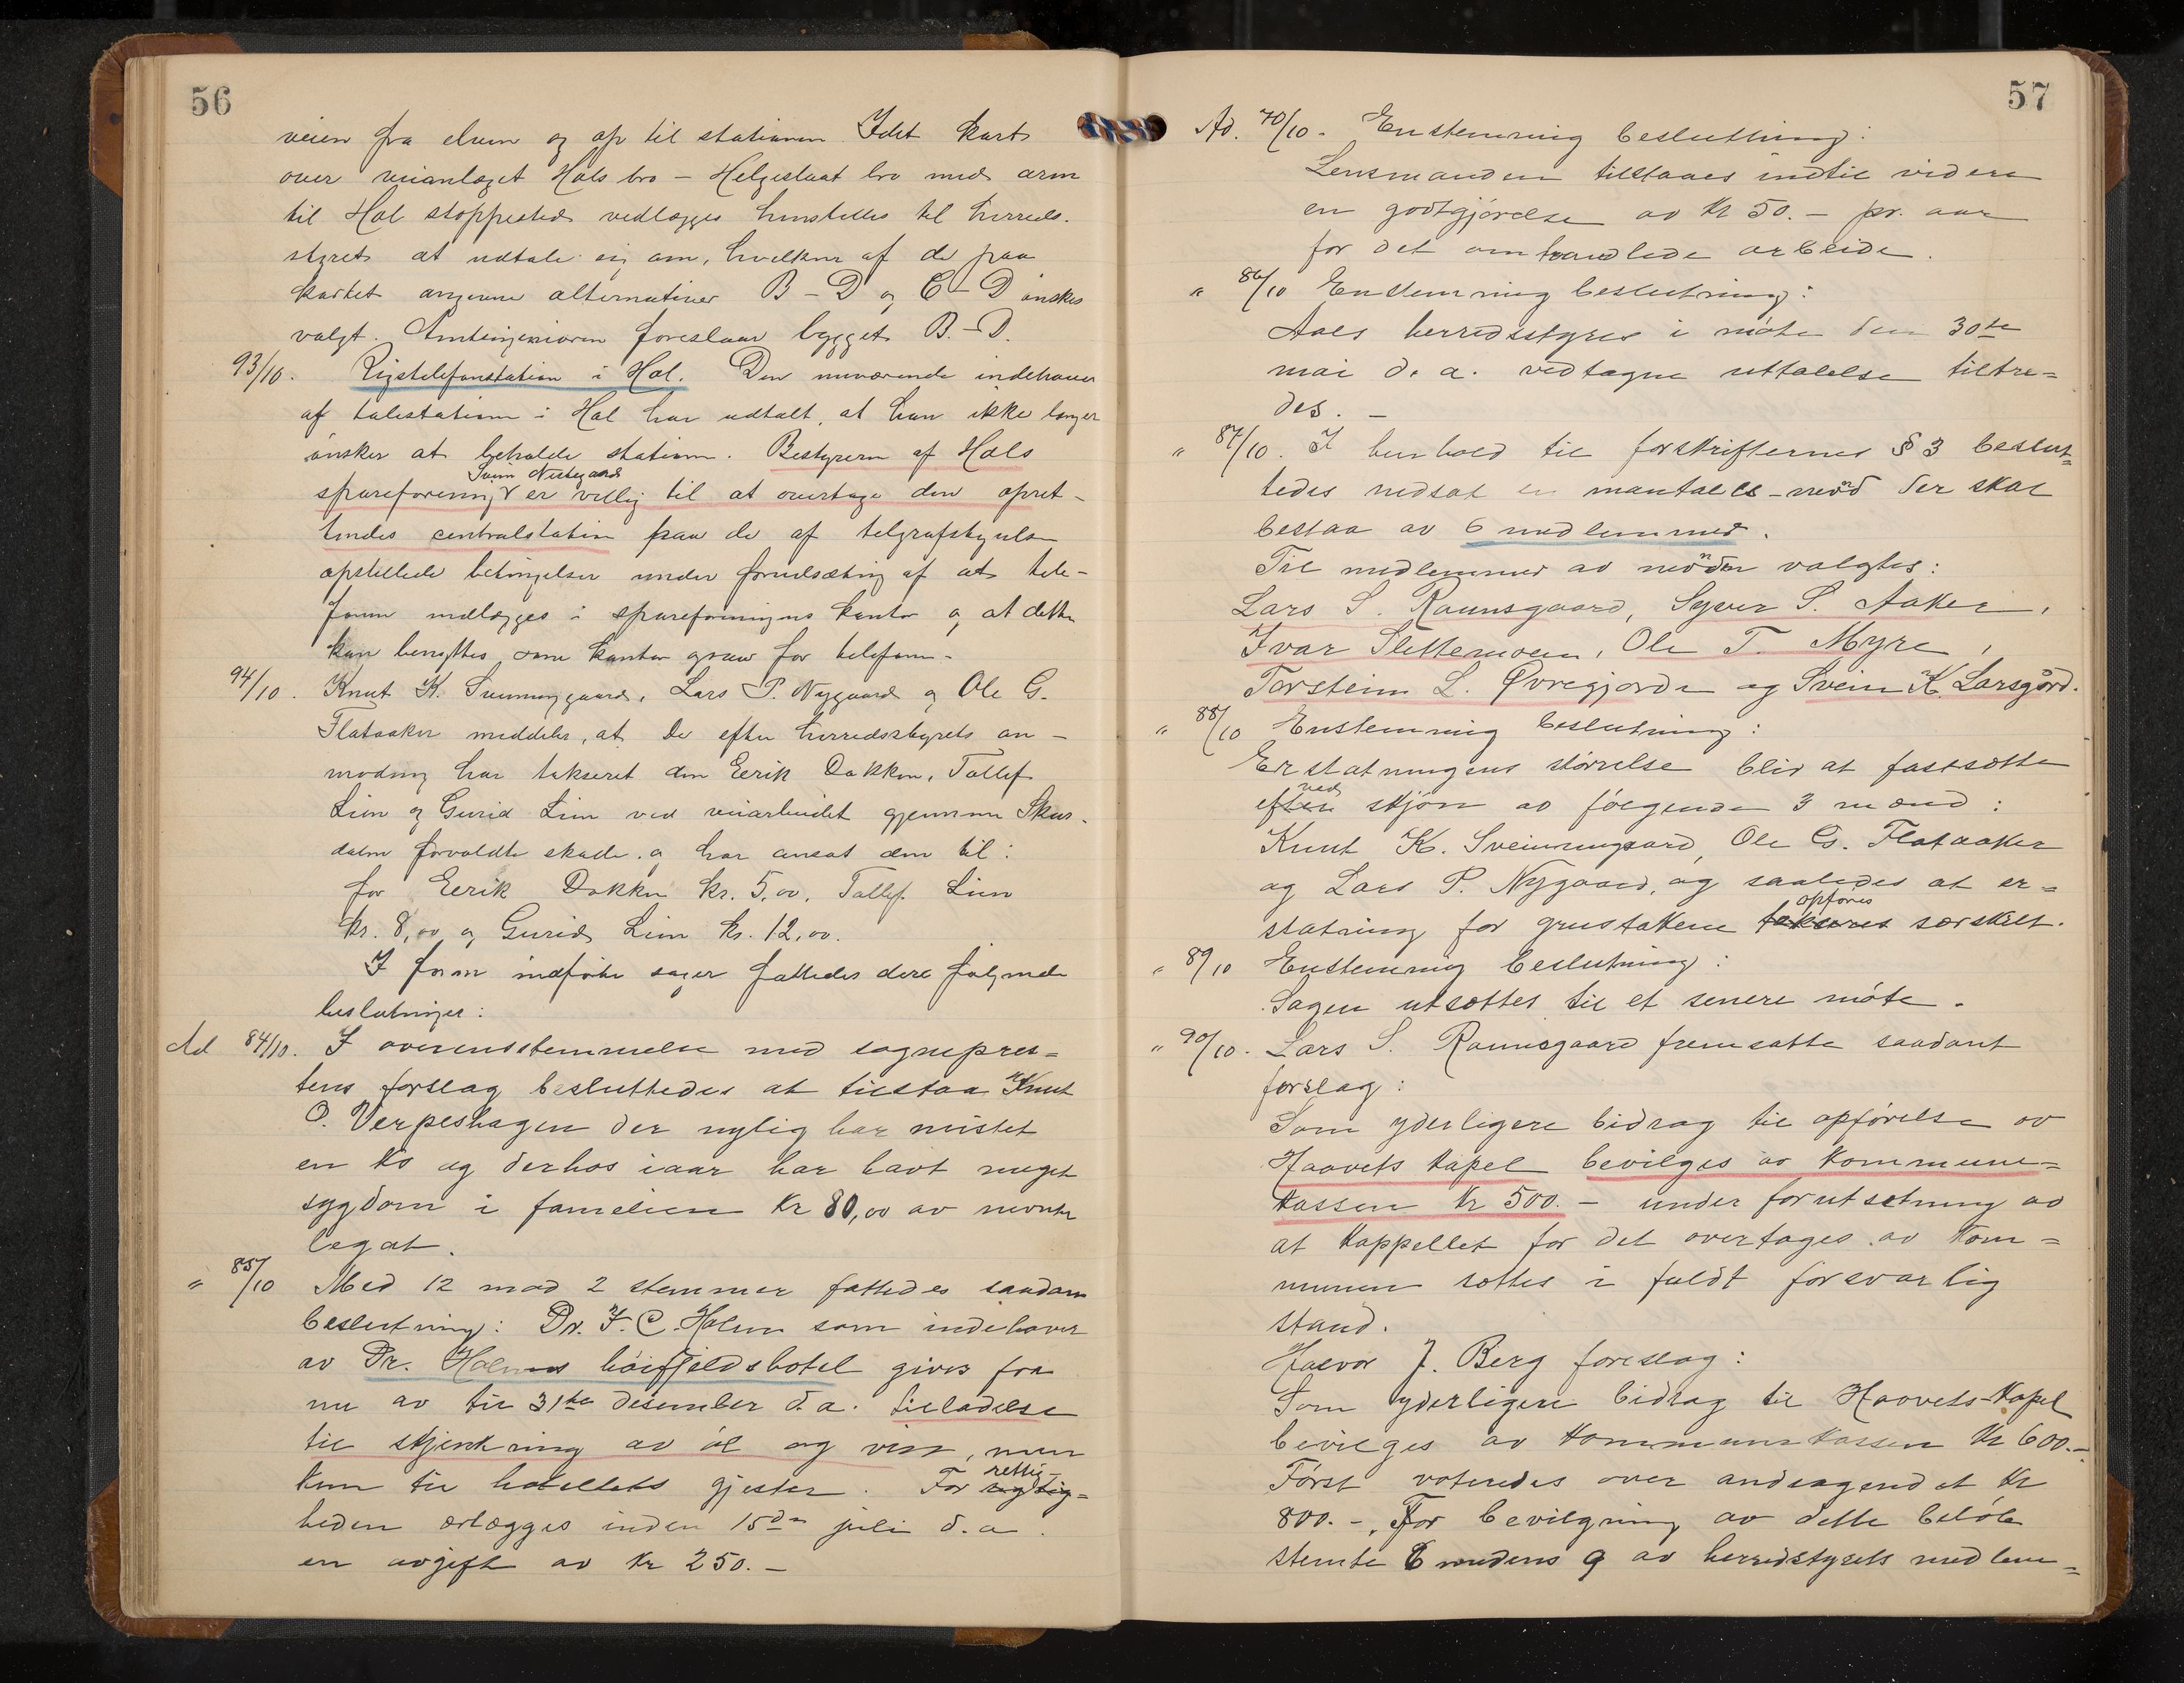 56
veien fra elven og op til stationen. Idet kart
over veianlæget Hols bro – Helgeslaat bro med arm
til Hol stoppested vedlægges henstilles til herreds-
styret at udtale sig om, hvilken af de paa
kartet angivne alternativer B–D og C–D ønskes
valgt. Amtsingeniøren foreslaar bygget B–D.
93/10. Rigstelefonstation i Hol. Den nuværende indehaver
af talestationen i Hol har udtalt, at han ikke længer
ønsker at beholde stationen. Bestyreren af Hols
Svein Nestegaard
spareforening er villig til at overtage den opret-
tendes centralstation paa de af telegrafstyrelsen
opstillede betingelser under forudsætning af at tele-
fonen indlægges i spareforeningens kontor og at dette
kan benyttes som kontor ogsaa for telefonen.
94/10. Knut K. Sveinungaard, Lars P. Nygaard og Ole G.
Flataaker meddeler, at de efter herredsstyrets an-
modning har takseret den Eerik Dokken, Tollef
Lien og Gurid Lien ved veiarbeidet gjennem Skur-
dalen forvoldte skade og har ansat den til:
for Eerik Dokken kr. 5,00, Tollef Lien
kr. 8,00 og Gurid Lien kr. 12,00.
I foran indførte sager fattedes dere følgende
beslutninger:
Ad 84/10. I overensstemmelse med sognepres=
tens forslag besluttedes at tilstaa Knut
O. Verpeshagen der nylig har mistet
en ko og derhos iaar har havt meget
sygdom i familien kr 80,00 av
legat.
" 85/10 Med 12 mod 2 stemmer fattedes saadan
beslutning: Dr. I. C. Holm som indehaver
av Dr. Holms høifjeldshotel gives fra
nu av til 31te desember d.a. tilladelse
til skjenkning av øl og vin, men
kun til hotellets gjester. For rettig-
heden erlægges inden 15de juli d.a.
en avgift av kr 250.–
57
Ad. 70/10. Enstemmig beslutning:
Lensmanden tilstaaes indtil videre
en godtgjørelse av kr 50.– pr. aar
for det omhandlede arbeide.
" 86/10 Enstemmig beslutning:
Aals herredsstyres i møte den 30te
mai d. a. vedtagne uttalelse tiltre=
des. –
" 87/10. I henhold til forskrifternes § 3 beslut=
tedes nedsat en mantals-nevnd der skal
bestaa av 6 medlemmer.
Til medlemmer av nevnden valgtes:
Lars S. Raunsgaard, Syver S. Aaker,
Ivar Slettemoen, Ole T. Myre,
Torstein L. Øvregjorde og Svein K. Larsgård.
" 88/10 Enstemmig beslutning:
Erstatningens størrelse blir at fastsætte
ved
efter skjøn av følgende 3 mænd:
Knut K. Sveinungaard, Ole G. Flataaker
og Lars P. Nygaard, og saaledes at er=
opføres
statning for grustakene takseres særskilt.
" 89/10 Enstemmig beslutning:
Sagen utsættes til et senere møte.
" 90/10. Lars S. Raunsgaard fremsatte saadant
forslag:
Som yderligere bidrag til opførelse av
Haavets kapel bevilges av kommune=
kassen kr 500.– under forutsetning av
at kappellet før det overtages av kom=
munen sættes i fuldt forsvarlig
stand.
Halvor J. Berg foreslog:
Som yderligere bidrag til Haavets-kapel
bevilges av kommunekassen kr 600.–
Først voteredes over andragendet kr
800.–. For bevilgning av dette beløb
stemte 6 medens 9 av herredstyrets medlem=